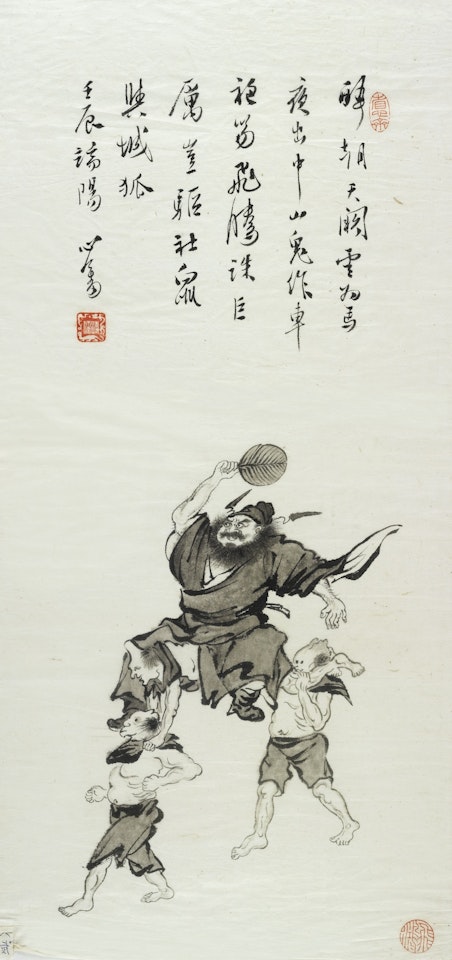 醉朝天闕雲為馬
夜出中山鬼作車
袍笏飛騰誅巨
厲豈驅社鼠
與城狐
壬辰端陽 心畬